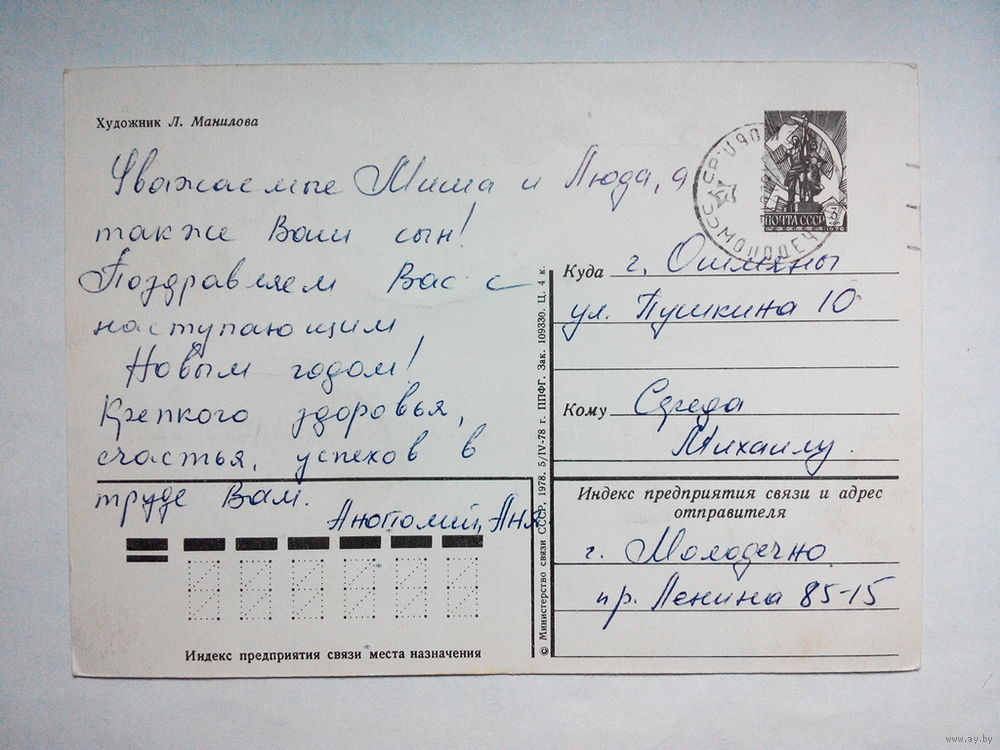 Художник Л. Манилова
Уважаемые Миша и Люда, а
также Ваш сын!
Поздравляем Вас с
наступающим
Новым годом!
Крепкого здоровья,
счастья, успехов в
труде Вам.
Анатолий, Аня.
ПОЧТА СССР
1976
СССР
МОЛОДЕЧ
Куда г. Ошмяны
ул. Пушкина 10
Кому Середа
Михаилу.
Индекс предприятия связи и адрес
отправителя
г. Молодечно
пр. Ленина 85-15
© Министерство связи СССР, 1978. 5/IV-78 г. ППФГ. Зак. 109330. Ц. 4 к.
Индекс предприятия связи места назначения
www.ay.by